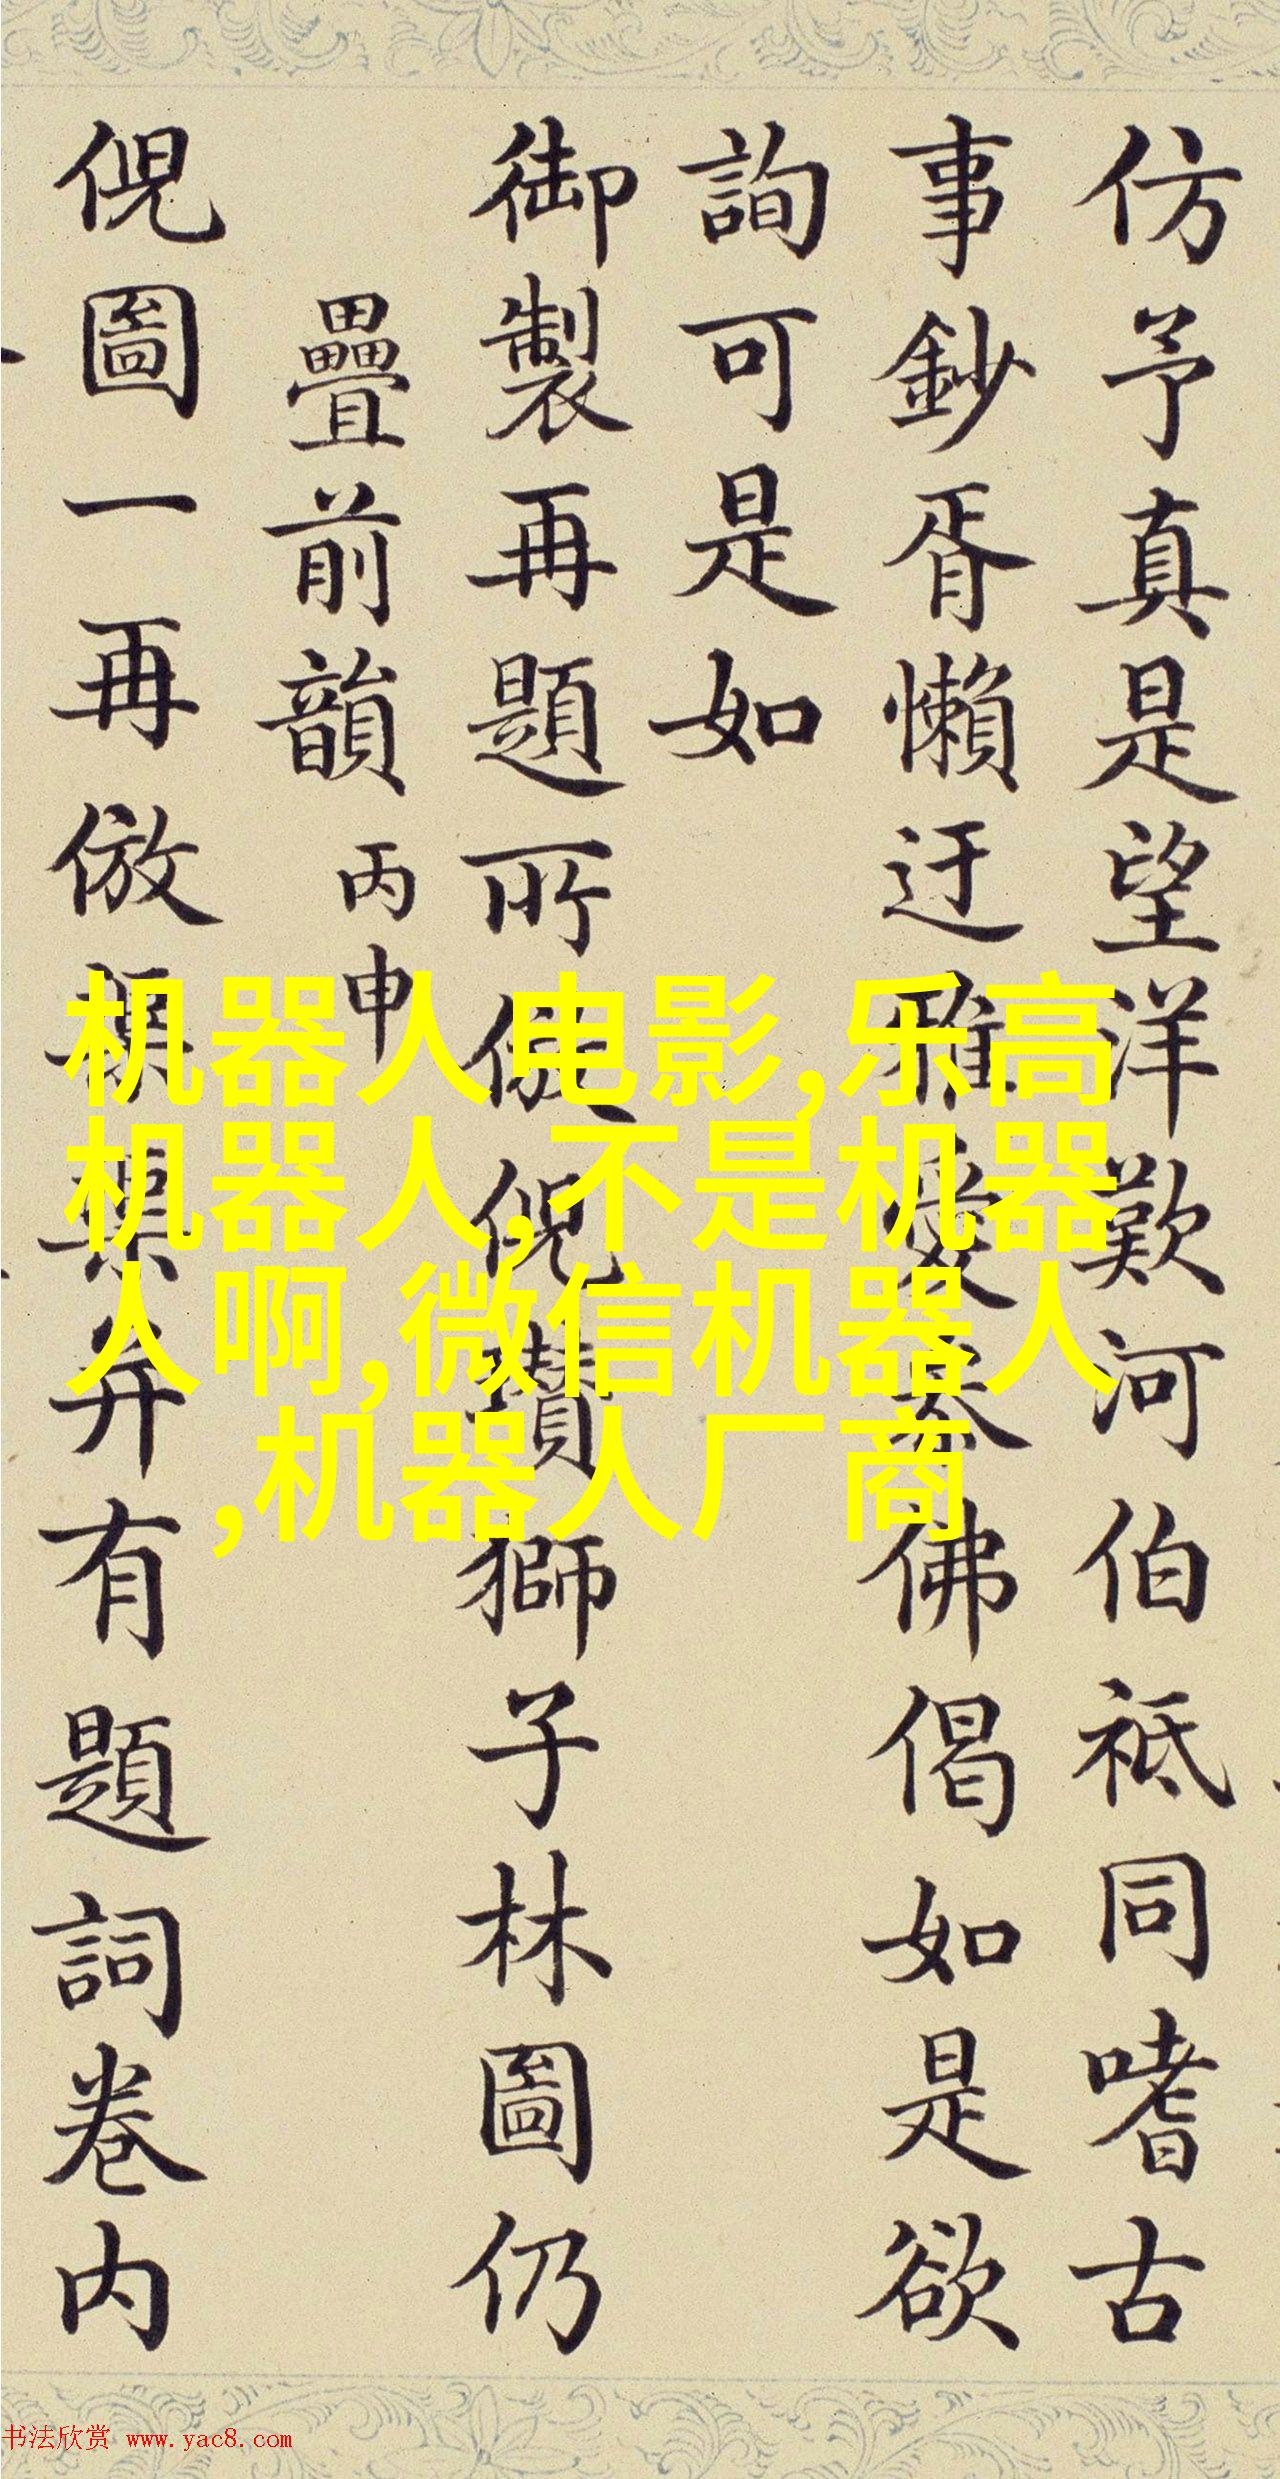 仿予真是望洋歎河伯祗同嗜古
事鈔胥懶迂雅愛參佛偈如是欲
詢可是如
御製再題所倣倪瓚獅子林圖仍
疊前韻丙申
倪圖一再倣并有題詞卷内
机器人电影,乐高
机器人,不是机器
人啊,微信机器人
,机器人厂商
书法欣赏 www.yac8.com